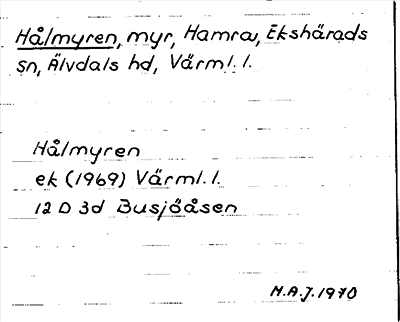 Hålmyren, myr, Hamra, Ekshärads
sn, Älvdals hd, Värml. l.
Hålmyren
ek (1969) Värml. l.
12 D 3d Busjöåsen
M.A.J. 1970